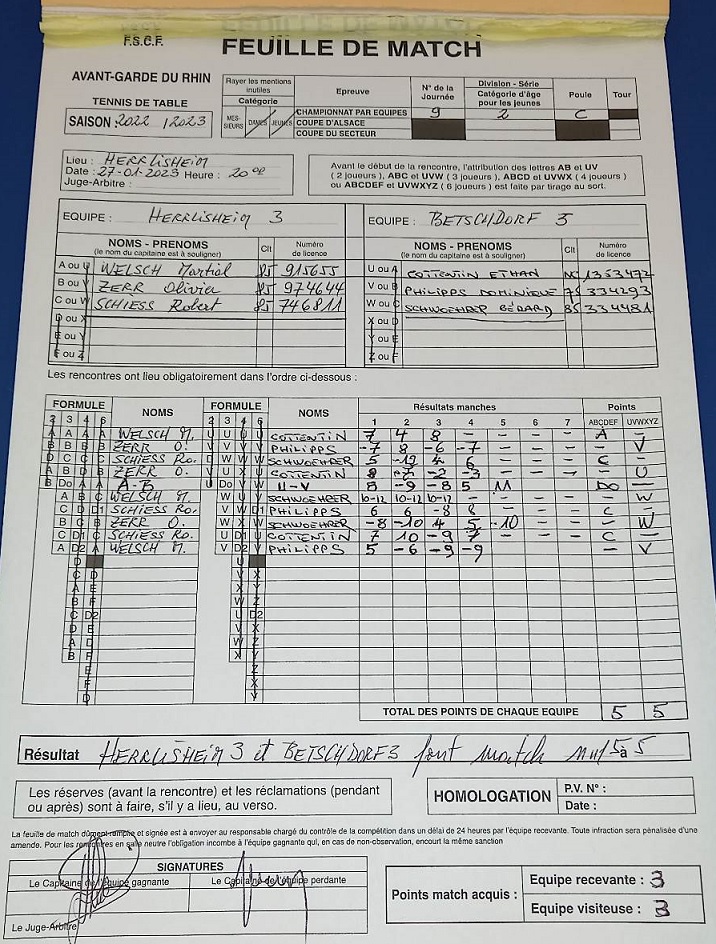 F.S.C.F.
FEUILLE DE MATCH
AVANT-GARDE DU RHIN
TENNIS DE TABLE
SAISON : 2022 / 2023
Rayer les mentions inutiles
Catégorie
MESSIEURS DAMES JEUNES
Epreuve
N° de la Journée
Division - Série
Catégorie d'âge pour les jeunes
Poule
Tour
CHAMPIONNAT PAR EQUIPES 9 2 C
COUPE D'ALSACE
COUPE DU SECTEUR
Lieu : HERRLISHEIM
Date : 27-01-2023 Heure : 20
Juge-Arbitre :
Avant le début de la rencontre, l'attribution des lettres AB et UV
( 2 joueurs ), ABC et UVW ( 3 joueurs ), ABCD et UVWX ( 4 joueurs )
ou ABCDEF et UVWXYZ ( 6 joueurs ) est faite par tirage au sort.
EQUIPE : HERRLISHEIM 3
EQUIPE : BETSCHDORF 3
NOMS - PRENOMS
(le nom du capitaine est à souligner)
Clt
Numéro de licence
NOMS - PRENOMS
(le nom du capitaine est à souligner)
Clt
Numéro de licence
A ou U WELSCH Martial 85 915655 U ou A COTTENTIN ETHAN NC 1353472
B ou V ZERR Olivier 85 974644 V ou B PHILIPPS DOMINIQUE 75 334293
C ou W SCHIESS Robert 85 746811 W ou C SCHWOEHRER BÉRARD 85 334481
D ou X X ou D
E ou Y Y ou E
F ou Z Z ou F
Les rencontres ont lieu obligatoirement dans l'ordre ci-dessous :
FORMULE NOMS FORMULE NOMS Résultats manches Points
2 3 4 6 2 3 4 6 1 2 3 4 5 6 7 ABCDEF UVWXYZ
WELSCH M. COTTENTIN 7 4 8 - - - - A -
ZERR O. PHILIPPS -7 8 -6 -7 - - - - V
SCHIESS Ro. SCHWOEHRER 5 -12 4 6 - - - C -
ZERR O. COTTENTIN 8 -7 -2 -3 - - - - U
A-B U-V 8 -9 -8 5 11 Do -
WELSCH M. SCHWOEHRER 10-12 10-12 10-12 - - - - - W
SCHIESS Ro. PHILIPPS 6 6 -8 8 - - - C -
ZERR O. SCHWOEHRER -8 -10 4 5 -10 - - - W
SCHIESS Ro. COTTENTIN 7 10 -9 7 - - - C -
WELSCH M. PHILIPPS 5 -6 -9 -9 - V
TOTAL DES POINTS DE CHAQUE EQUIPE 5 5
Résultat HERRLISHEIM 3 et BETSCHDORF 3 font match nul 5 à 5
Les réserves (avant la rencontre) et les réclamations (pendant
ou après) sont à faire, s'il y a lieu, au verso.
HOMOLOGATION
P.V. N° :
Date :
La feuille de match dûment remplie et signée est à envoyer au responsable chargé du contrôle de la compétition dans un délai de 24 heures par l'équipe recevante. Toute infraction sera pénalisée d'une
amende. Pour les rencontres en salle neutre l'obligation incombe à l'équipe gagnante qui, en cas de non-observation, encourt la même sanction
SIGNATURES
Le Capitaine de l'équipe gagnante
Le Capitaine de l'équipe perdante
Le Juge-Arbitre
Points match acquis :
Equipe recevante : 3
Equipe visiteuse : 3